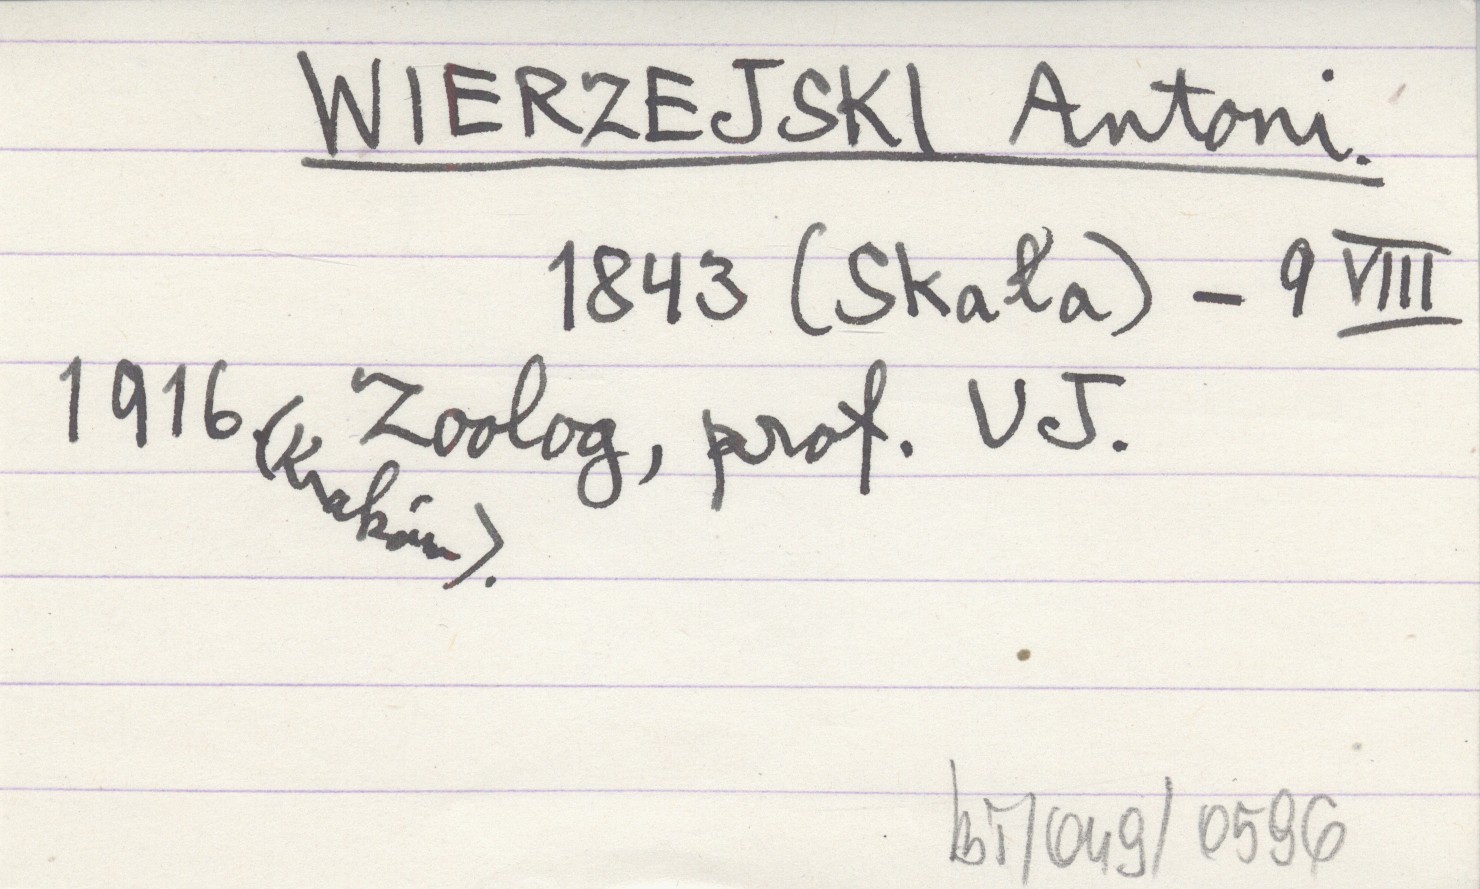 WIERZEJSKI Antoni.
1843 (Skała) – 9 VIII
1916 (Kraków). Zoolog, prof. UJ.
bT/049/0596